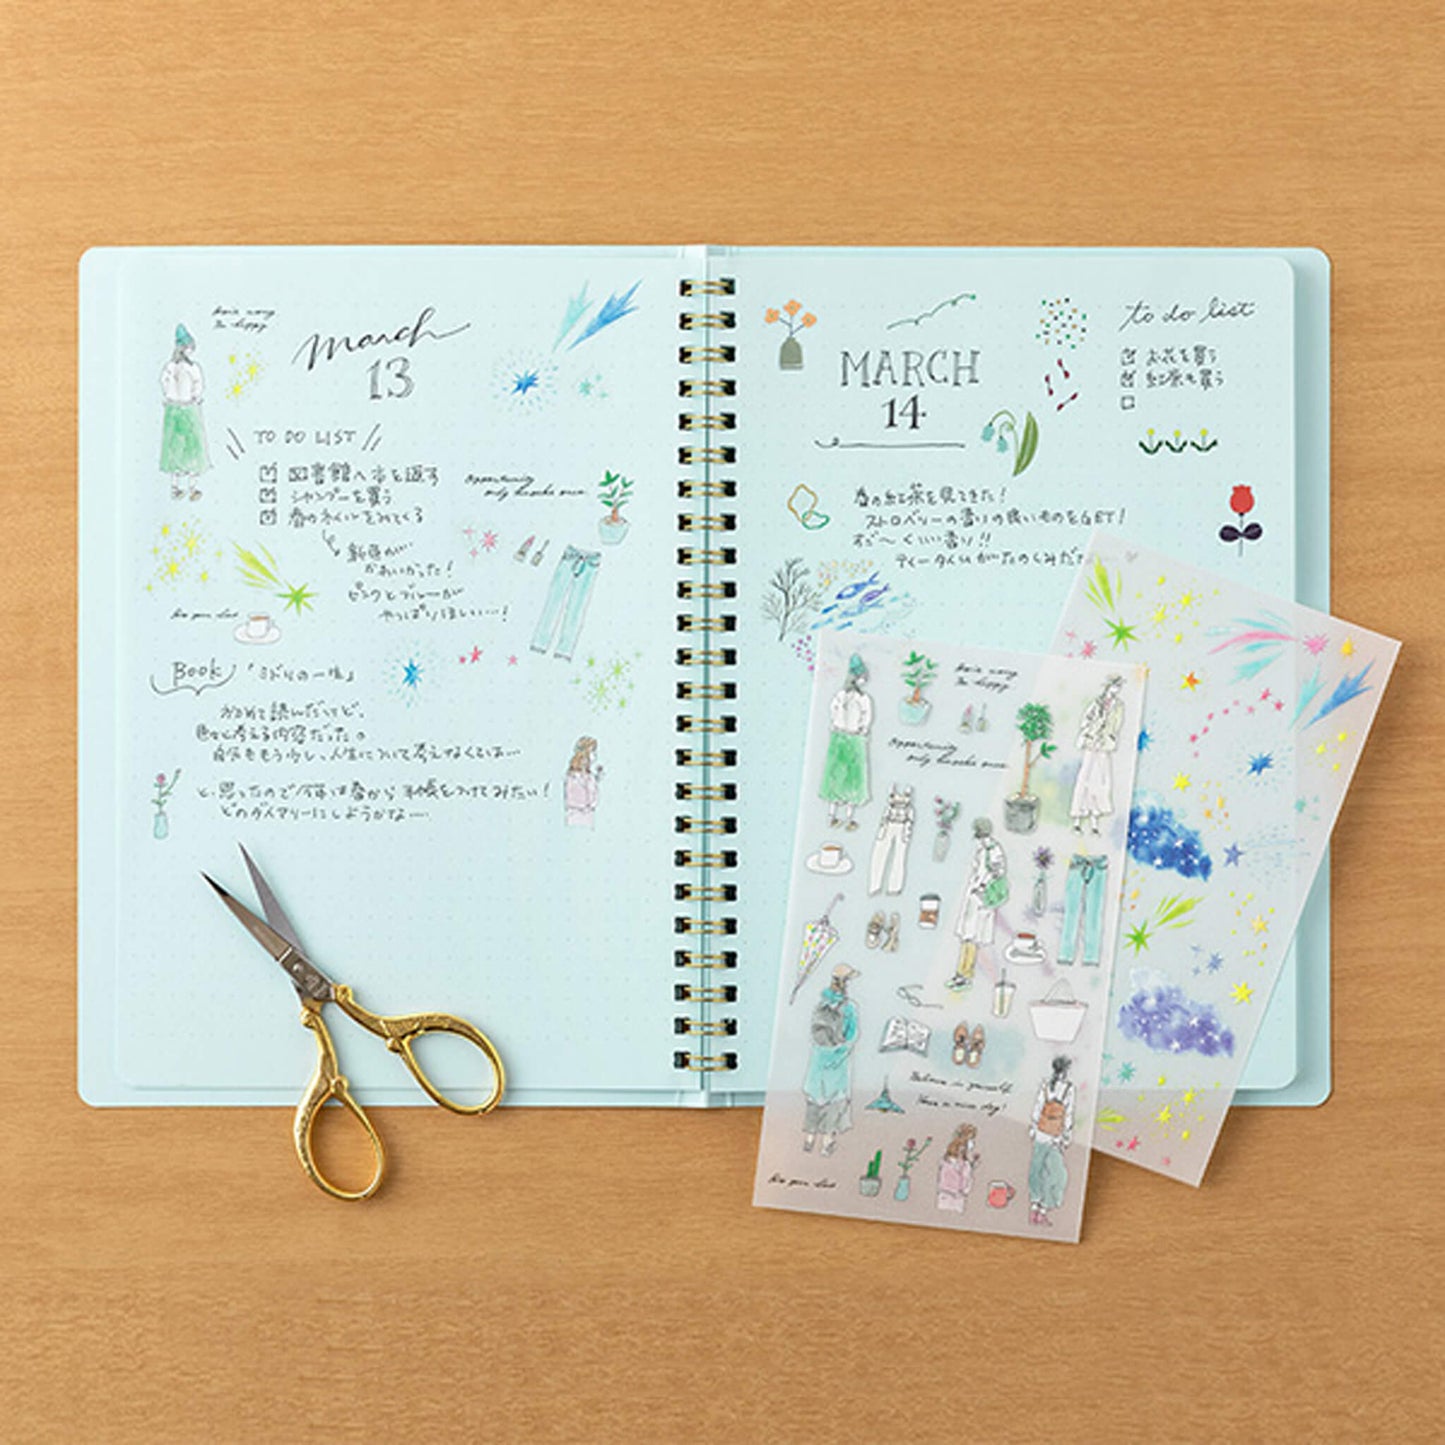 march
13
TO DO LIST
図書館へ本を返す
シャンプーを買う
春のネイルをみてくる
新色が…
かわいかった!
ピンクとブルーが
やっぱりほしい…!
Opportunity
only knocks once
Book 「ミドリの一生」
おわりまで読んだけど、
色々と考える内容だったの
自分ももう少し、人生について考えなくちゃ…
と、思ったので今年は春から手帳をつけてみたい!
どのダイアリーにしようかな…
MARCH
14
to do list
お花を買う
紅茶を買う
春の紅茶を見てきた!
ストロベリーの香りの良いものをGET!
すご〜くいい香り!!
ティータイムがたのしみだ
Opportunity
only knocks once
Believe in yourself
Have a nice day!